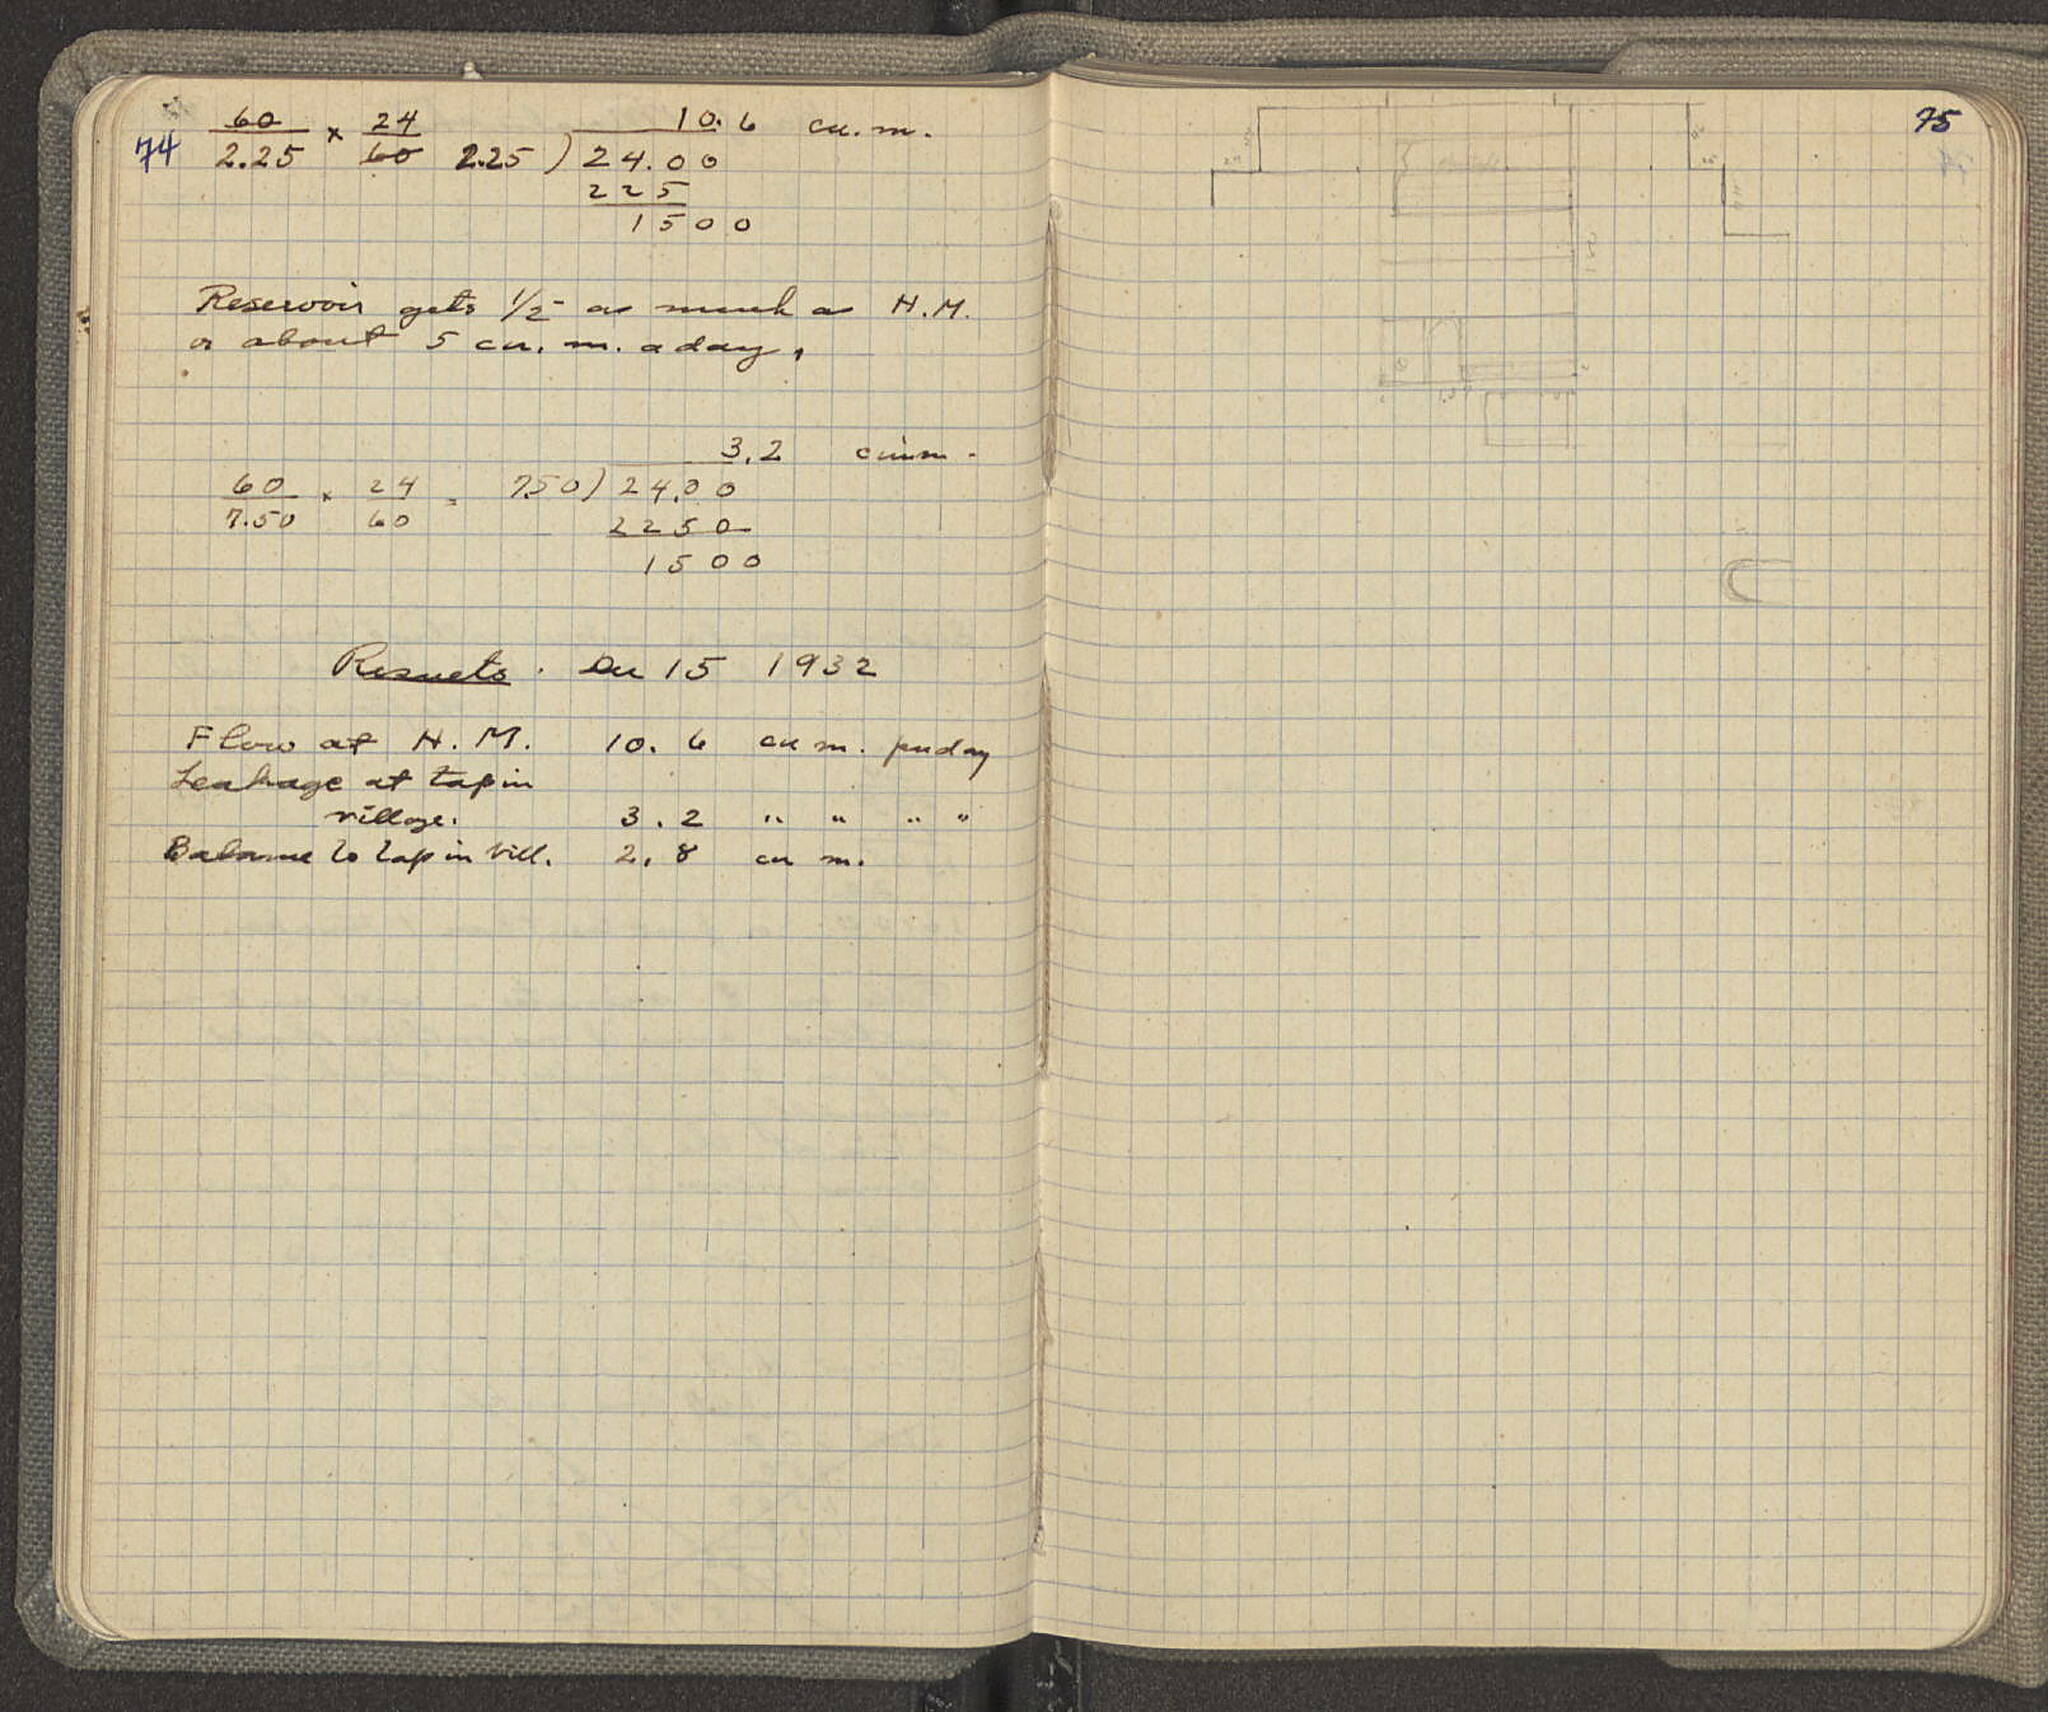 74
60/2.25 × 24/60 2.25 ) 24.00 10.6 cu. m.
225
1500
Reservoir gets 1/2 as much as H.M.
or about 5 cu. m. a day.
3.2 cu. m.
60/7.50 × 24/60 = 7.50 ) 24.00
2250
1500
Results. Dec 15 1932
Flow at H. M. 10.6 cu m. per day
Leakage at tap in
village. 3.2 " " " "
Balance to tap in vill. 2.8 cu m.
75